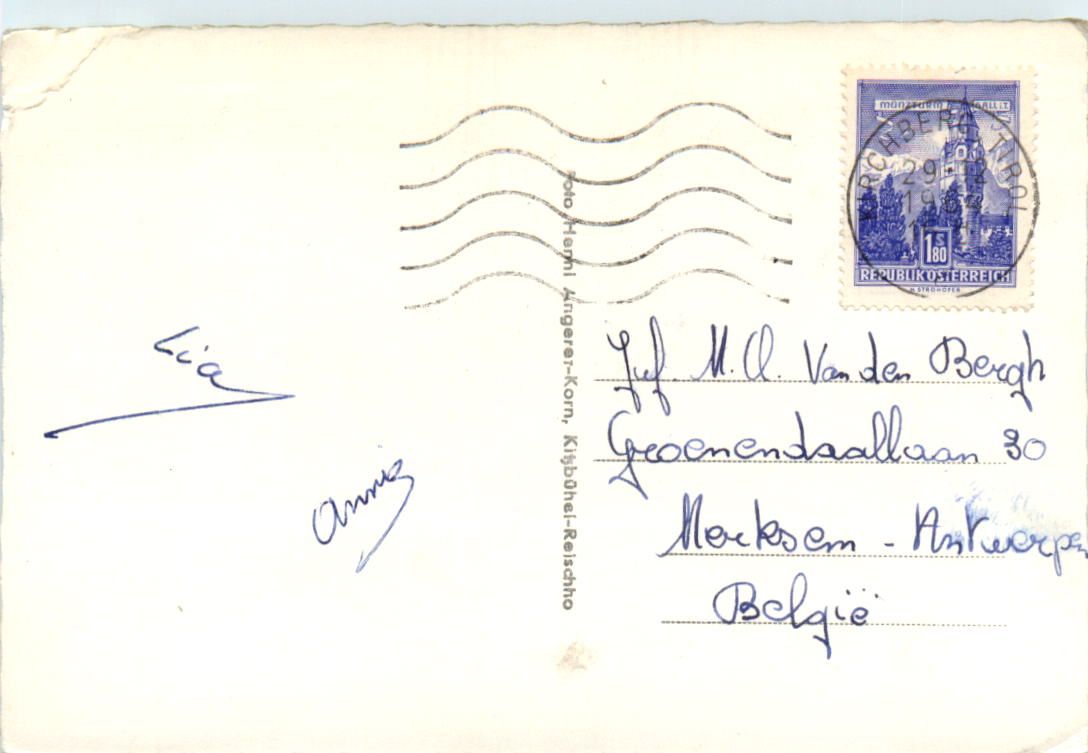 MÜNZTURM
HALL i.T.
KIRCHBERG TIROL
29.12
REPUBLIK ÖSTERREICH
1 S 80
H. STROHOFER
Foto Henni Angerer-Korn, Kitzbühel-Reischho
Lia
Annie
Juf. M. A. Van den Bergh
Groenendaallaan 30
Merksem - Antwerpen
België